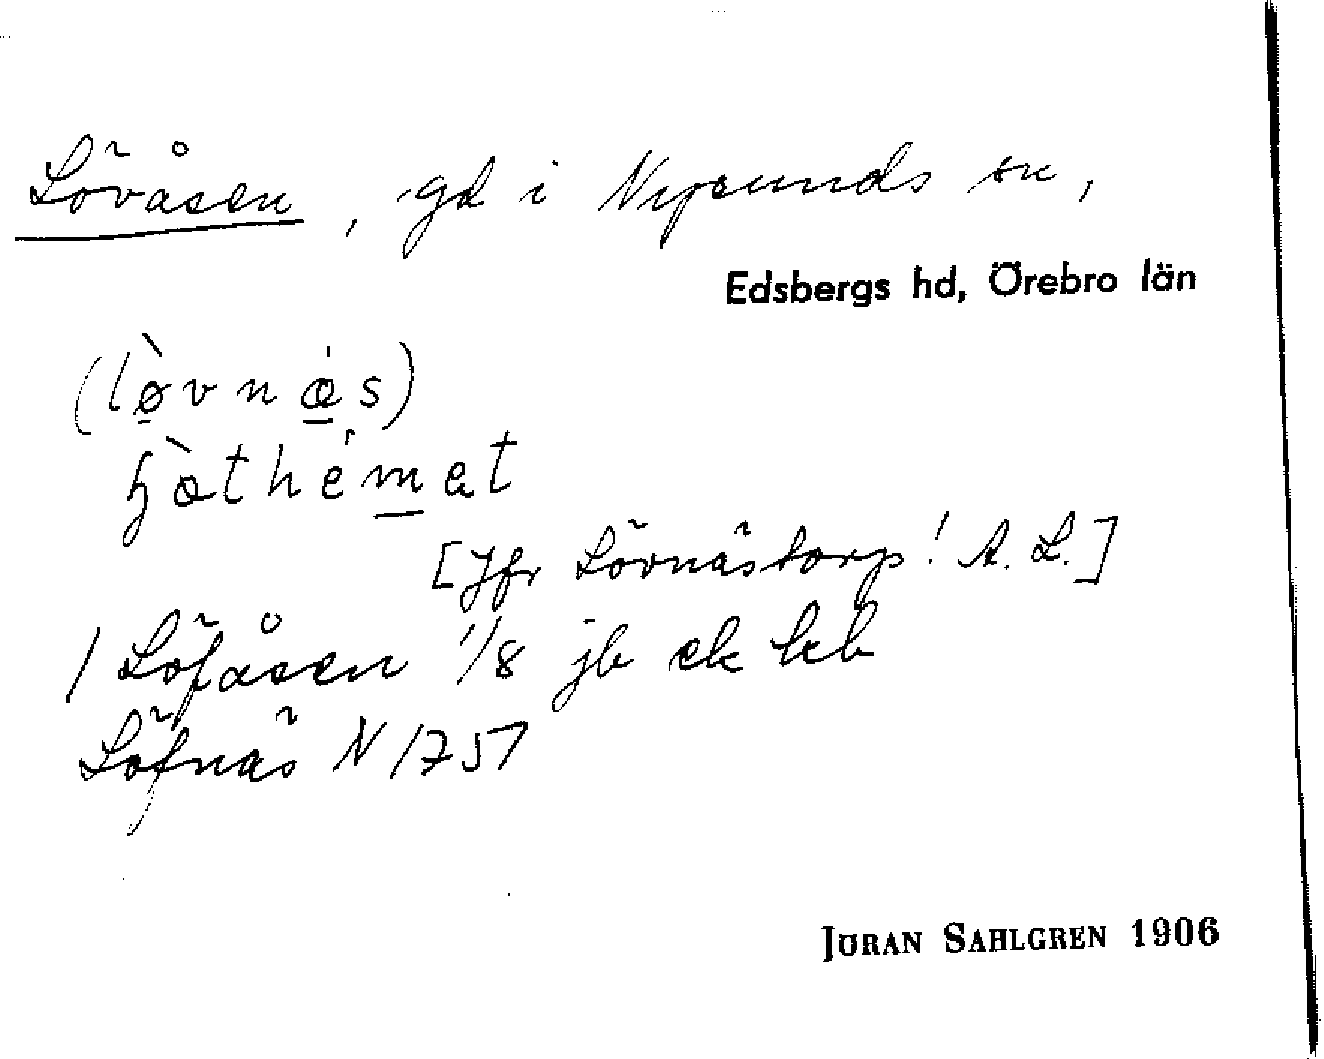 Lövåsen, gd i Nysunds sn,
Edsbergs hd, Örebro län
(lø̀vnǽs)
[Jfr Lövnästorp! A. L.]
1 Löfåsen 1/8 jb ek kb
Löfnäs N 1757
JÖRAN SAHLGREN 1906